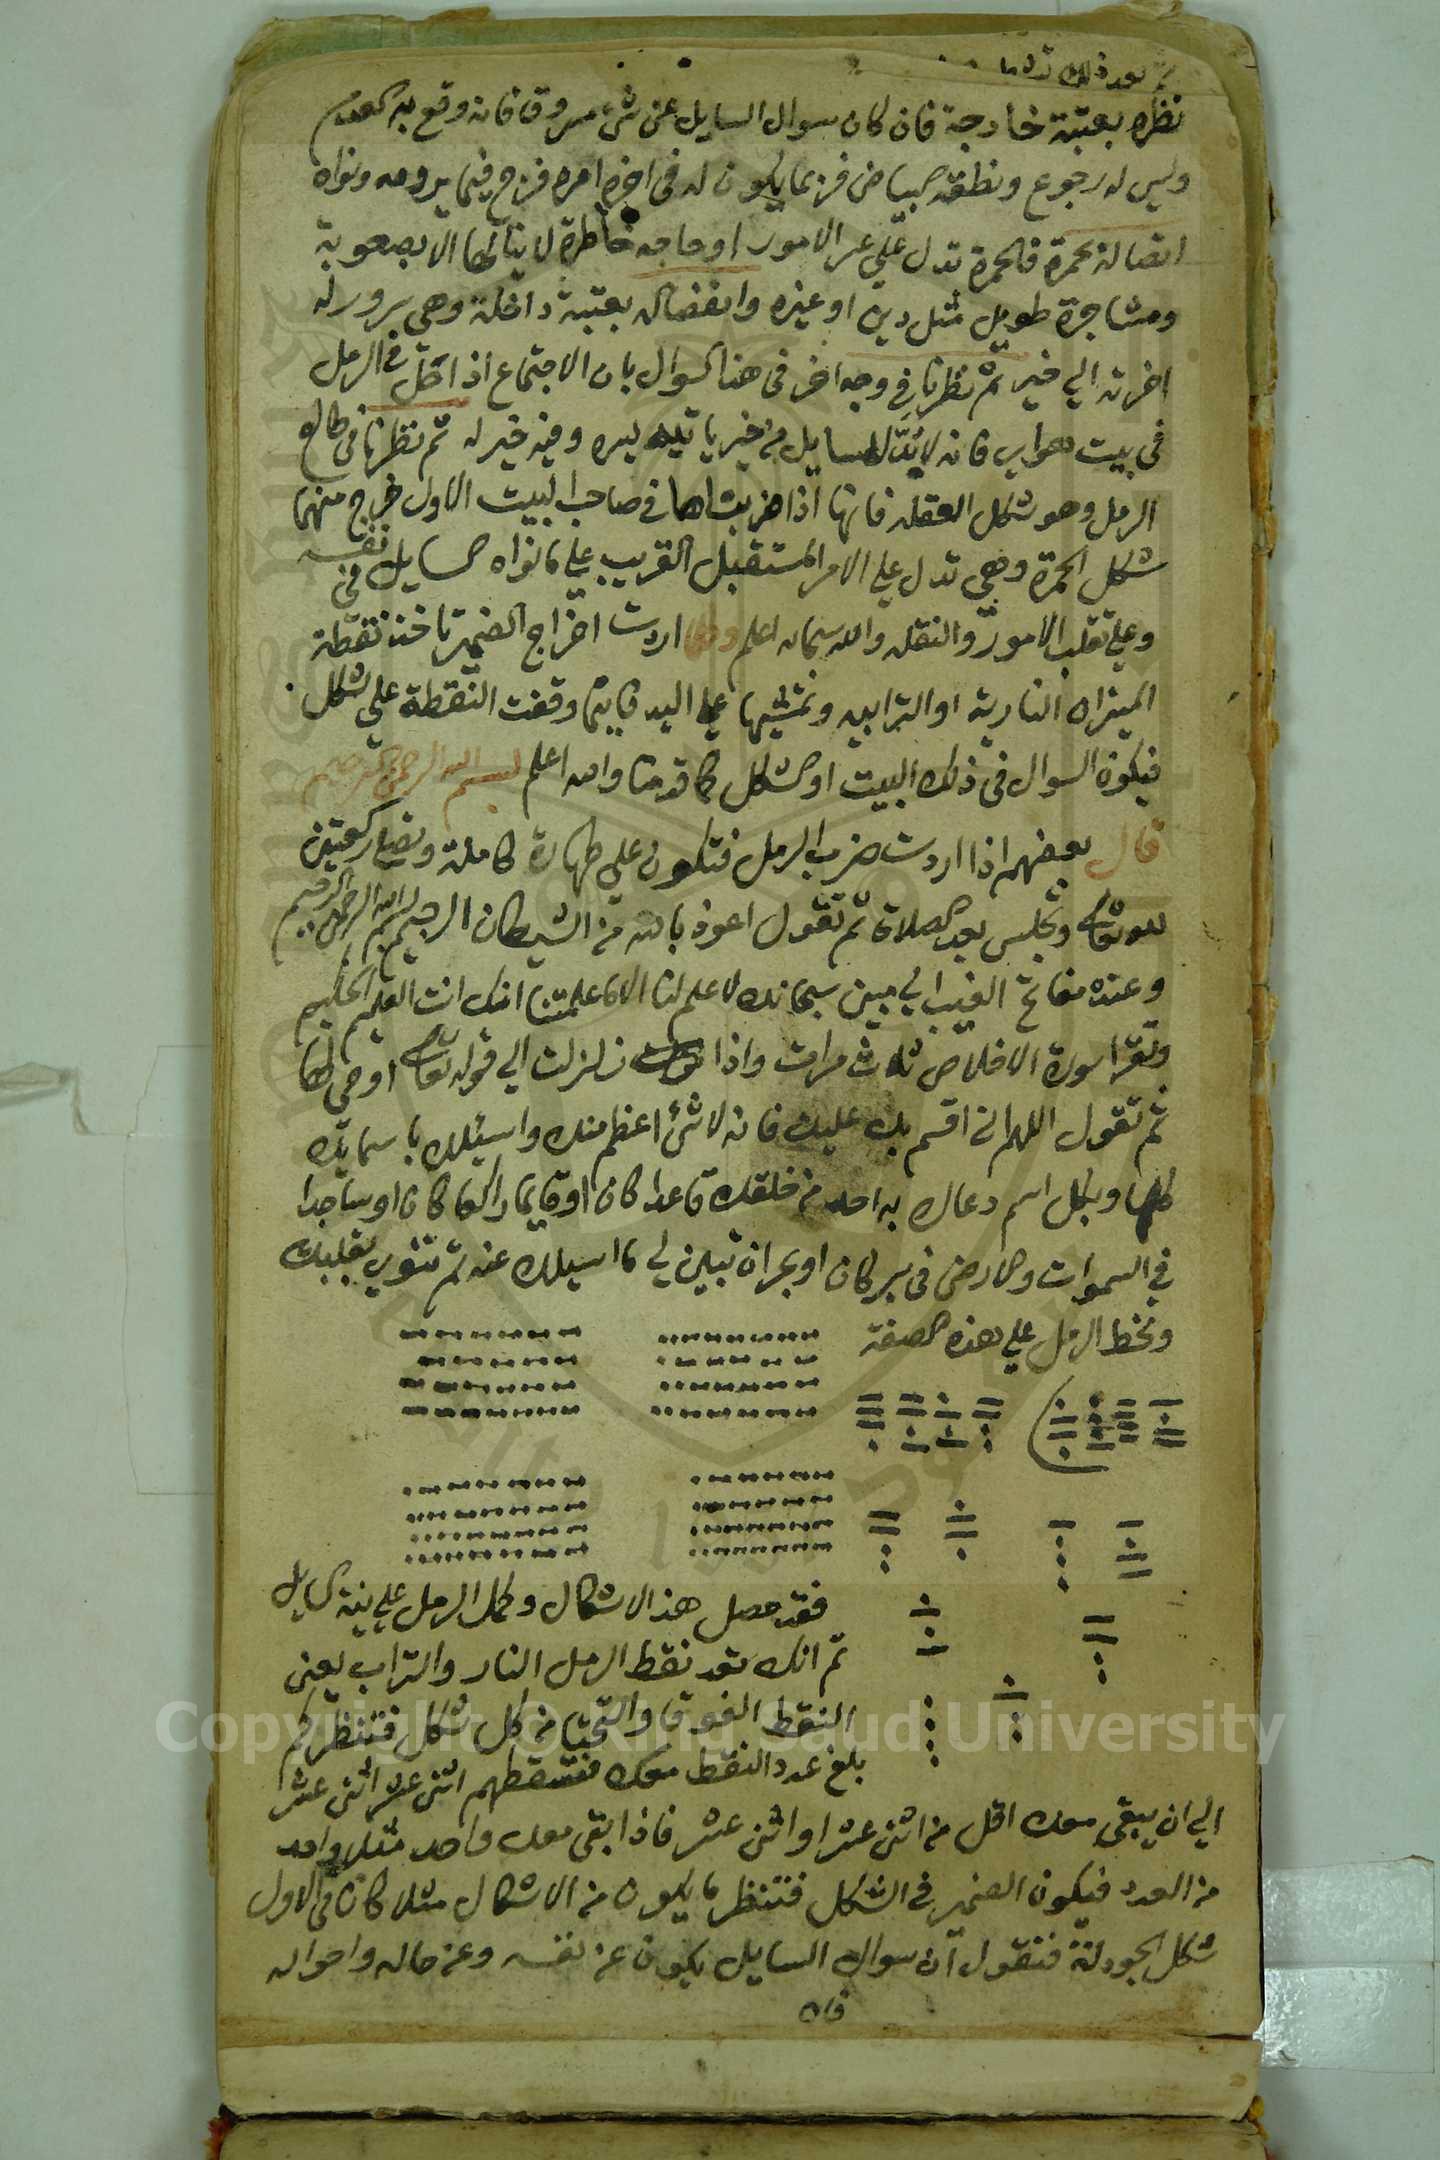 نظره بعتبة خارجة فان كان سوال السايل عن شئ مسروق فانه وقع به
وليس له رجوع ونطقه ببياض فربما يكون له في اخره امره فرج فيما يرومه ونواه
اتصاله بحمرة فالحمرة تدل علي عسر الامور او حاجه خاطرة لا ينالها الا بصعوبة
ومشاجرة طويل مثل دين او غيره وانفصاله بعتبة داخلة وهي سرور له
اخرته الي خير ثم نظرنا في وجه اخر في هذا السوال بان الاجتماع اذا حل في الرمل
في بيت هواي فانه لابد للسايل من خبر ياتيه يسره وفيه خير له ثم نظرنا في طالع
الرمل وهو شكل العقله فانها اذا ضربناها في صاحب البيت الاول خرج منهما
شكل الحمرة وهي تدل علي الامر المستقبل القريب علي ما نواه السايل في نفسه
وعلي تقلب الامور والنقله والله سبحانه اعلم واذا اردت اخراج الضمير تاخذ نقطة
الميزان النارية او الترابيه وتمشيها علي اليد فاينما وقفت النقطة علي شكل
فيكون السوال في ذلك البيت او الشكل كما قدمنا والله اعلم بسم الله الرحمن الرحيم
قال بعضهم اذا اردت ضرب الرمل فتكون علي طهارة كاملة وتصلي ركعتين
لله تعالي وتجلس بعد الصلاة ثم تقول اعوذ بالله من الشيطان الرجيم بسم الله الرحمن الرحيم
وعنده مفاتح الغيب الي مبين سبحانك لا علم لنا الا ما علمتنا انك انت العليم الحكيم
وتقرا سورة الاخلاص ثلاث مرات واذا زلزلت الي قوله تعالي اوحي لها
ثم تقول اللهم اني اقسم بك عليك فانه لا شئ اعظم منك واسئلك باسمايك
كلها وبكل اسم دعاك به احد من خلقك قاعدا كان او قايما راكعا كان او ساجدا
في السموات والارض في بر كان او بحر ان تبين لي ما اسيلك عنه ثم تنوي بقلبك
وتخط الرمل علي هذه الصفة
فقد حصل هذا الاشكال وكمل الرمل علي نية السايل
ثم انك تعد نقط الرمل النار والتراب يعني
النقط الفوقا والتحتا من كل شكل فتنظر كم
بلغ عدد النقط معك فتسقطهم اثني عشر اثني عشر
الي ان يبقي معك اقل من اثني عشر او اثني عشر فاذا بقي معك واحد مثلا واحد
من العدد فيكون الضمير في الشكل فتنظر ما يكون من الاشكال مثلا كان في الاول
شكل الجودلة فتقول ان سوال السايل يكون عن نفسه وعن حاله واحواله
فان
Copyright © King Saud University